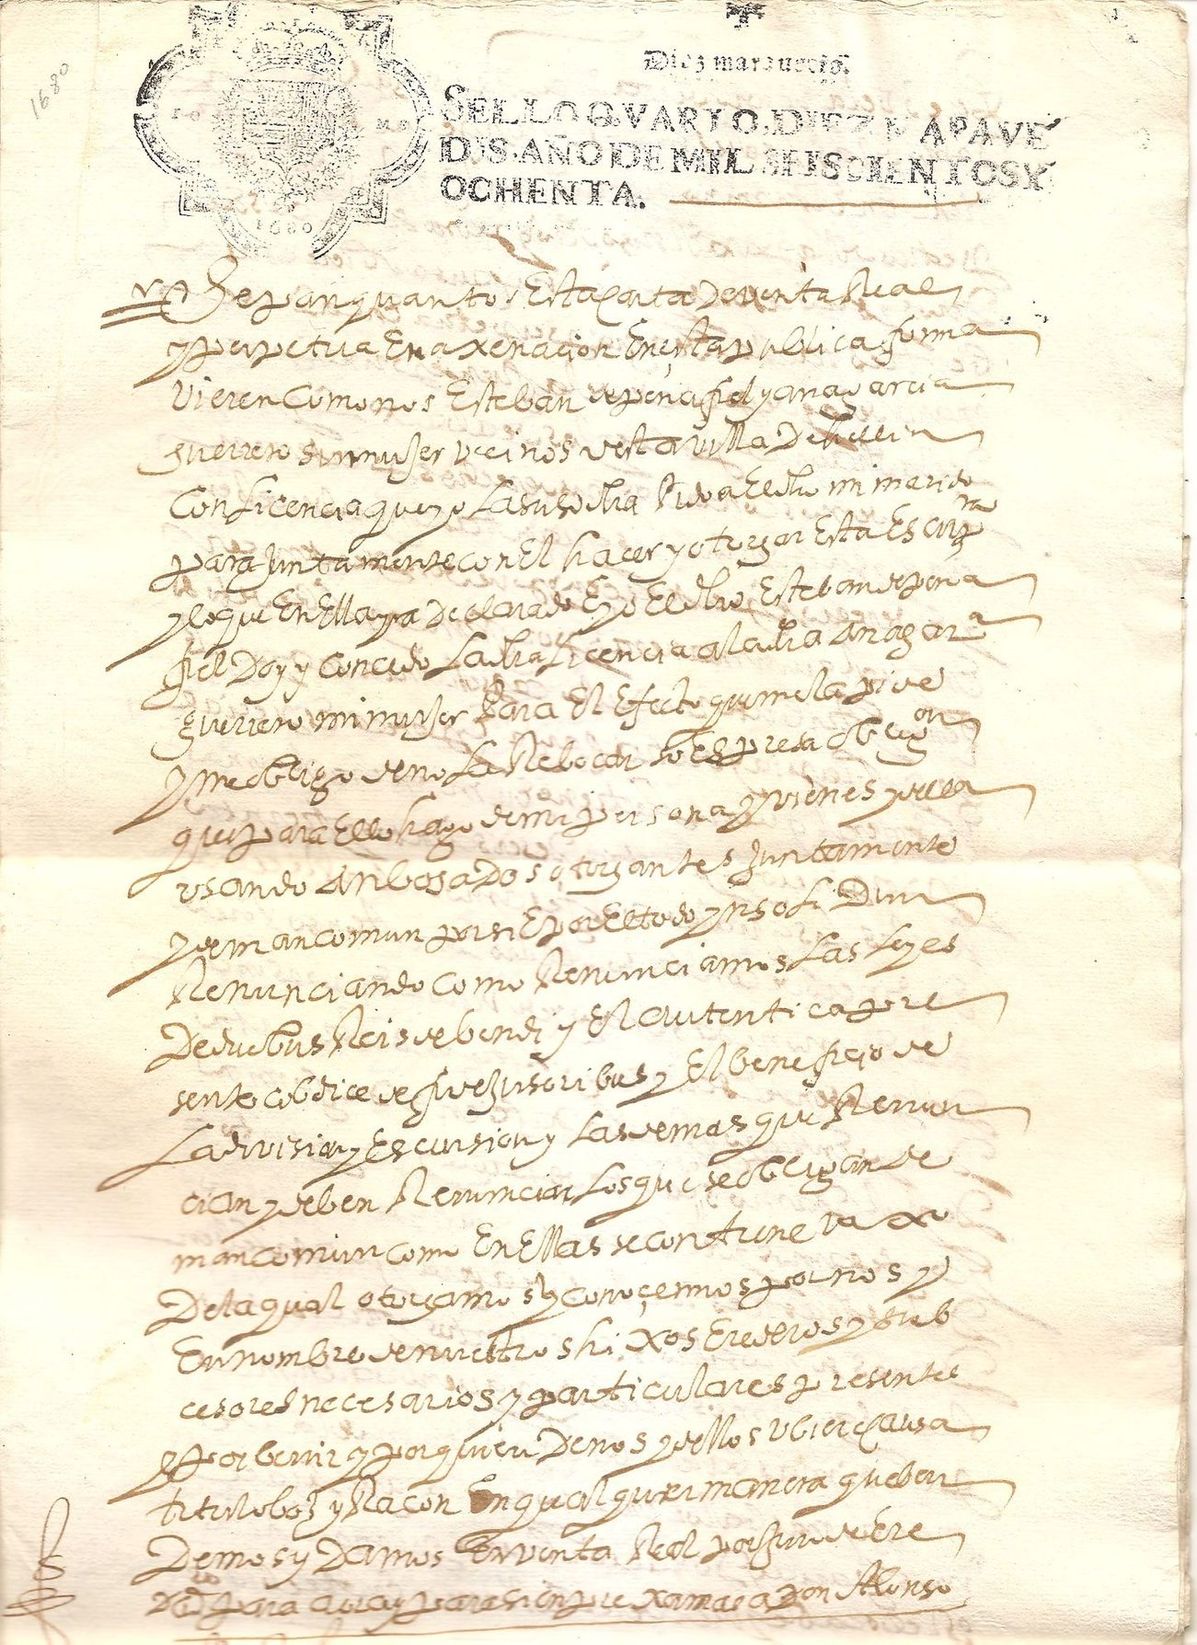 1680
Diez marauedis.
SELLO QVARTO, DIEZ MARAVE
DIS, AÑO DE MIL SEISCIENTOS Y
OCHENTA.
1680
Sepan quantos Esta Carta De venta Real
y perpetua Enaxenacion En esta publica forma
Vieren Como nos Esteban de peñafiel y ana garcia
guerrero su muger vecinos desta villa De hellin
Con licencia que yo La susodha Pido a El dho mi marido
para Juntamente con El hacer y otorgar Esta Escrip^ra
y lo que En Ella yra Declarado E yo El dho Esteban de pena
fiel Doy y Concedo La dha licencia a la dha Ana gar^a
guerrero mi muger Para El Efecto que me la pide
y me obligo de no La Rebocar so Espresa oblig^on
que para Ello hago de mi persona y vienes y della
vsando Anbos a Dos otorgantes Juntamente
y de mancomun por si E por El todo ynsolidun
Renunciando como Renunciamos Las leyes
De duobus Reis debendi y El autentica pre
sente cobdice de fidejusoribus y El beneficio de
La division y Escursion y Las demas que Renun
cian y deben Renunciar Los que se obligan de
mancomun como En Ellas se contiene vaxo
De la qual otorgamos y Conoçemos por nos y
En nombre de nuestros hixos Erederos y sub
cesores necesarios y particulares presentes
y por benir y por quien De nos y dellos Vbiere causa
titulo boz y Racon En qualquier manera que ben
Demos y Damos En venta Real por juro de Ere
Dad para aora y para sienpre xamas a Don Alonso